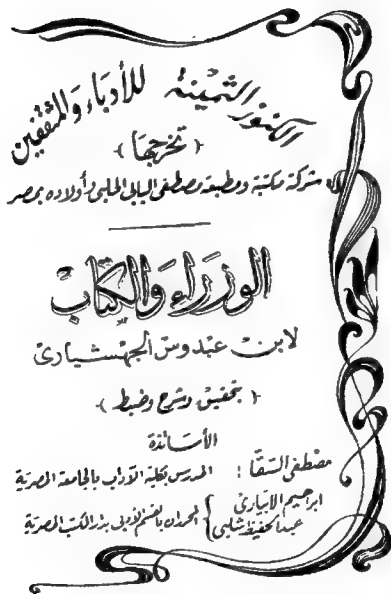 الكنوز الثمينة للأدباء والمثقفين
( تخرجها )
شركة مكتبة ومطبعة مصطفى البابى الحلبى وأولاده بمصر
الوزراء والكتاب
لابن عبدوس الجهشيارى
( بتحقيق وشرح وضبط )
الأساتذة
مصطفى السقا : المدرس بكلية الآداب بالجامعة المصرية
ابراهيم الابيارى
عبد الحفيظ شلبى } المحرران بالقسم الأدبى بدار الكتب المصرية